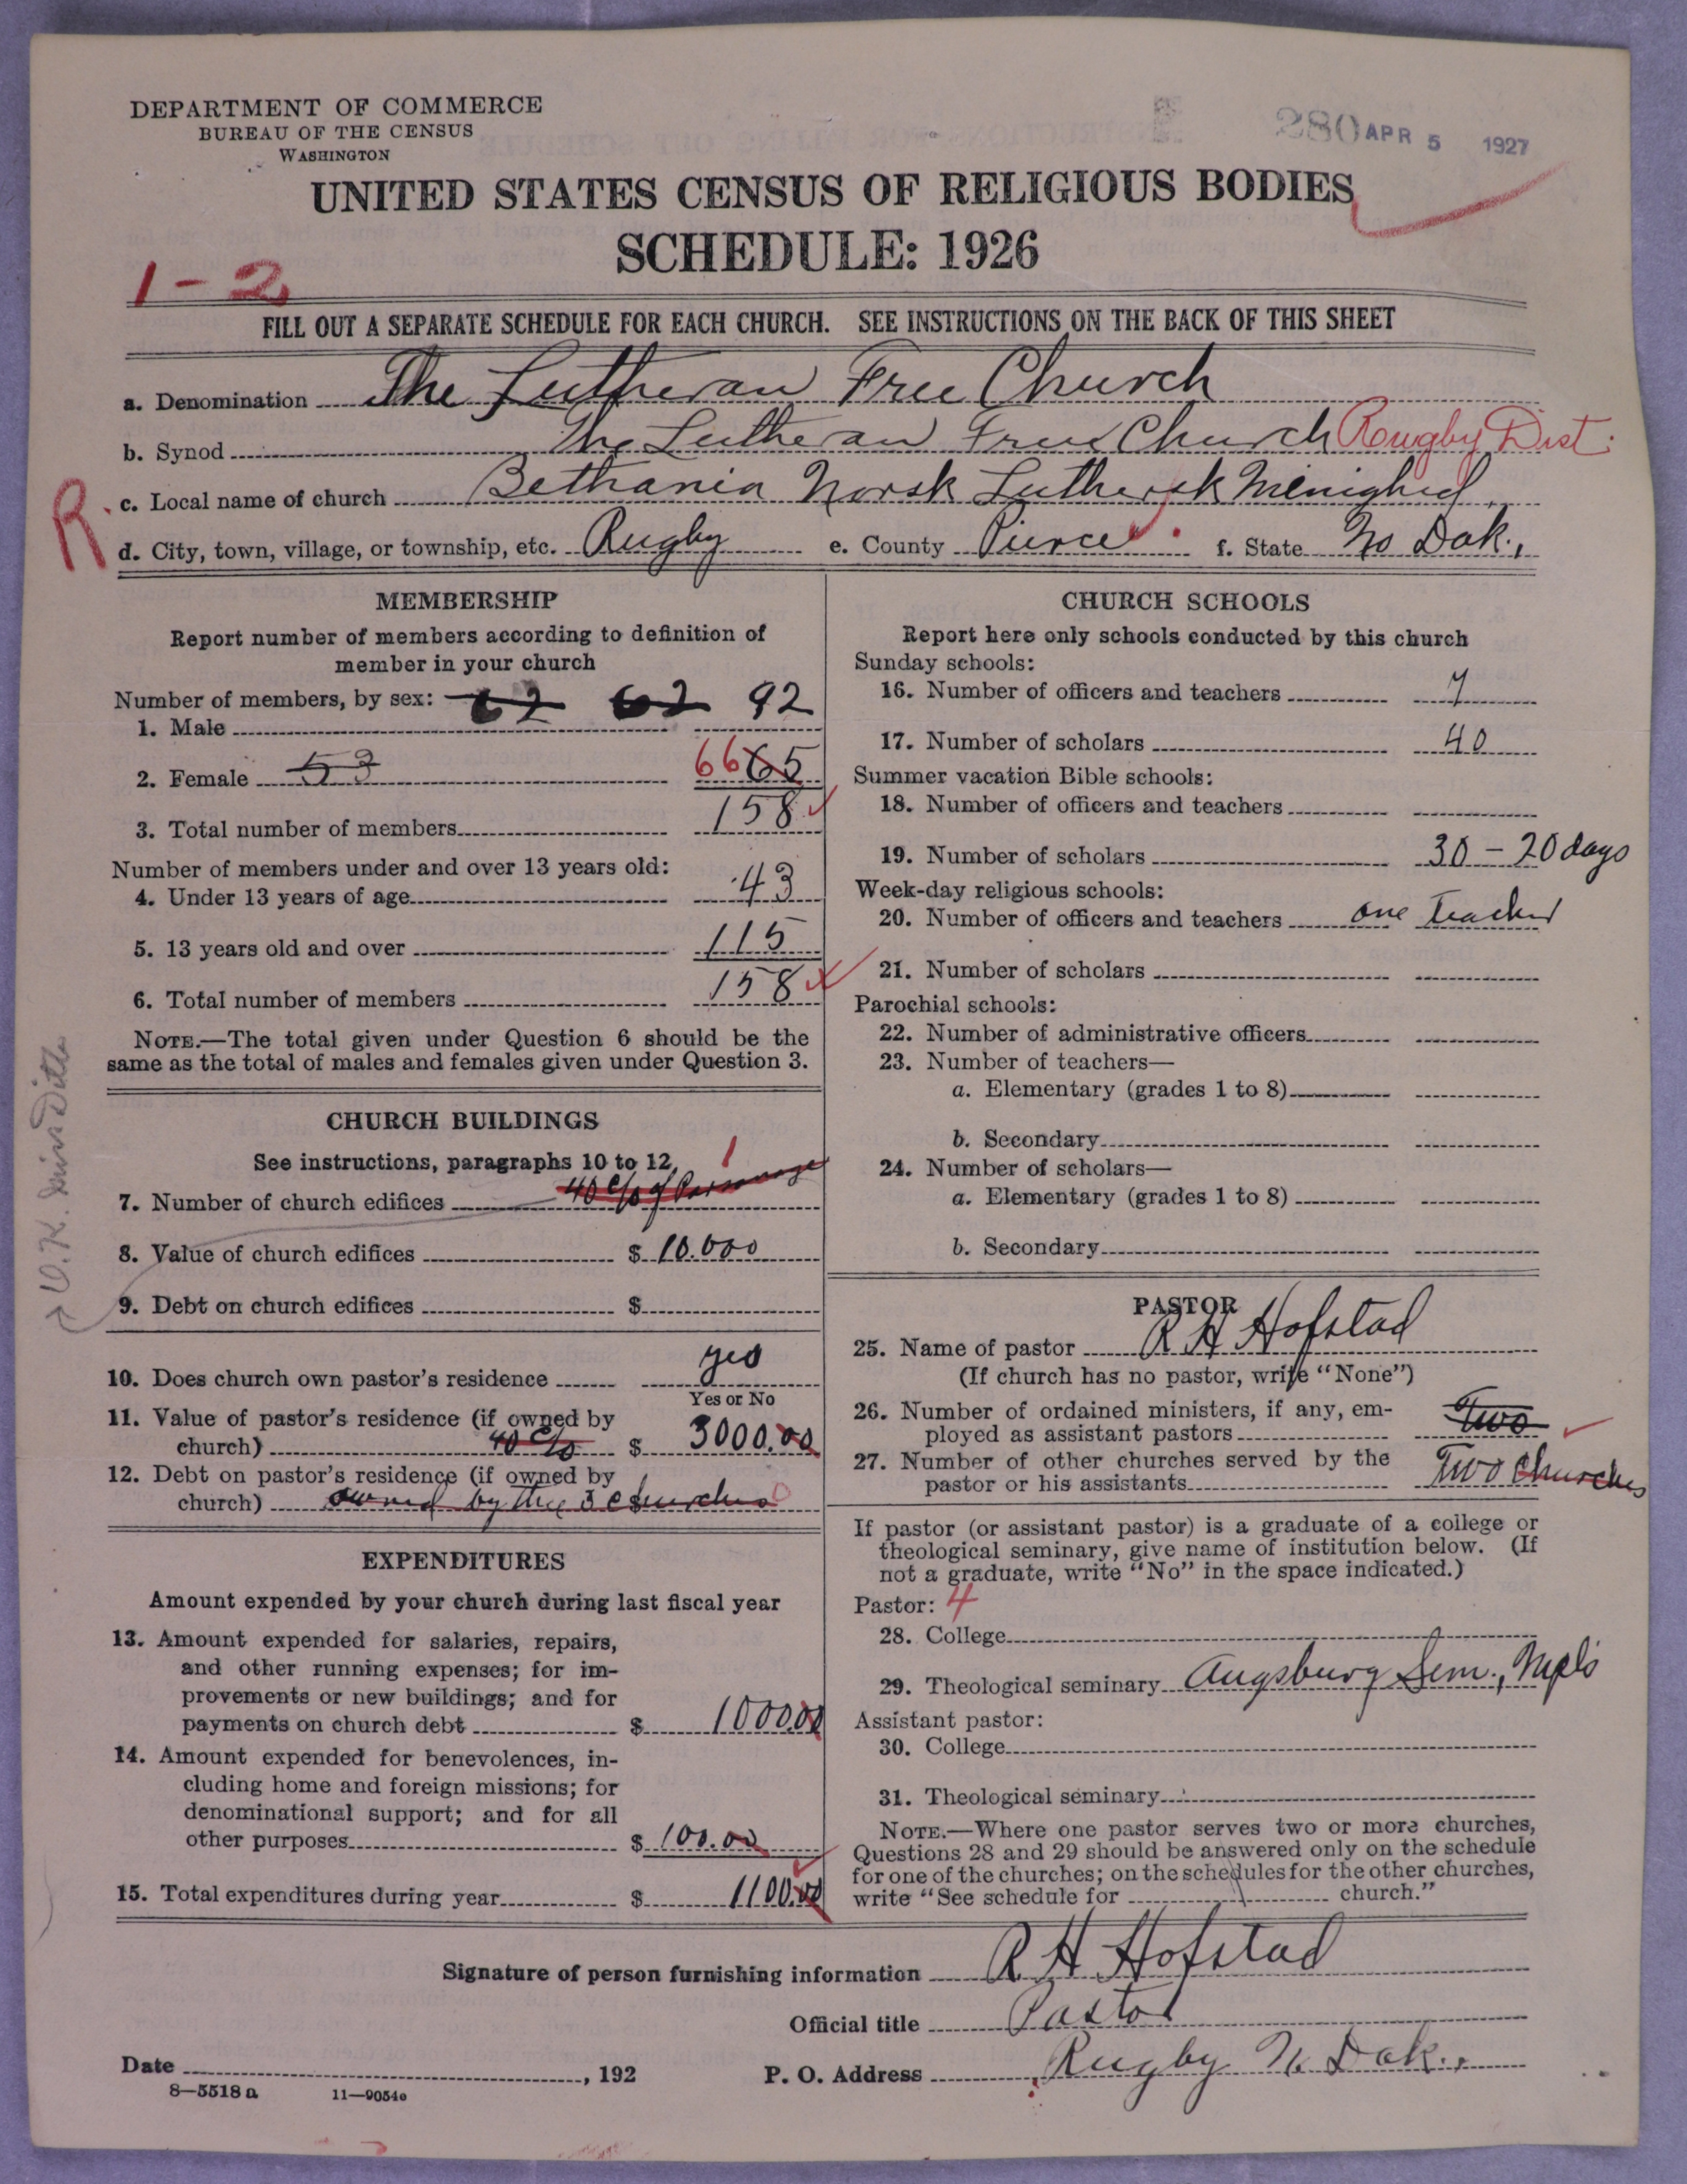 DEPARTMENT OF COMMERCE
BUREAU OF THE CENSUS
WASHINGTON
280 APR 5 1927
UNITED STATES CENSUS OF RELIGIOUS BODIES
SCHEDULE: 1926
1-2
FILL OUT A SEPARATE SCHEDULE FOR EACH CHURCH. SEE INSTRUCTIONS ON THE BACK OF THIS SHEET
a. Denomination The Lutheran Free Church
b. Synod The Lutheran Free Church Rougby Dist.
R. c. Local name of church Bethania Norsk Luthersk Menighed
d. City, town, village, or township, etc. Rugby e. County Pierce f. State No Dak.,
MEMBERSHIP
Report number of members according to definition of
member in your church
Number of members, by sex: 62 62 92
1. Male
2. Female 53 66 65
3. Total number of members 158
Number of members under and over 13 years old:
4. Under 13 years of age 43
5. 13 years old and over 115
6. Total number of members 158
NOTE.—The total given under Question 6 should be the
same as the total of males and females given under Question 3.
CHURCH BUILDINGS
See instructions, paragraphs 10 to 12
1
7. Number of church edifices 40 c/o of Parsonage
8. Value of church edifices $ 10.000
9. Debt on church edifices $
O.K.
10. Does church own pastor's residence yes
Yes or No
11. Value of pastor's residence (if owned by
church) 40 c/o $ 3000.00
12. Debt on pastor's residence (if owned by
church) owned by the 3 churches 0
EXPENDITURES
Amount expended by your church during last fiscal year
13. Amount expended for salaries, repairs,
and other running expenses; for im-
provements or new buildings; and for
payments on church debt $ 1000.00
14. Amount expended for benevolences, in-
cluding home and foreign missions; for
denominational support; and for all
other purposes $ 100.00
15. Total expenditures during year $ 1100.00
CHURCH SCHOOLS
Report here only schools conducted by this church
Sunday schools:
16. Number of officers and teachers 7
17. Number of scholars 40
Summer vacation Bible schools:
18. Number of officers and teachers
19. Number of scholars 30 - 20 days
Week-day religious schools:
20. Number of officers and teachers one Teacher
21. Number of scholars
Parochial schools:
22. Number of administrative officers
23. Number of teachers—
a. Elementary (grades 1 to 8)
b. Secondary
24. Number of scholars—
a. Elementary (grades 1 to 8)
b. Secondary
PASTOR
25. Name of pastor R H Hofstad
(If church has no pastor, write "None")
26. Number of ordained ministers, if any, em-
ployed as assistant pastors Two
27. Number of other churches served by the
pastor or his assistants Two Churches
If pastor (or assistant pastor) is a graduate of a college or
theological seminary, give name of institution below. (If
not a graduate, write "No" in the space indicated.)
Pastor: 4
28. College
29. Theological seminary Augsburg Sem., Mpls
Assistant pastor:
30. College
31. Theological seminary
NOTE.—Where one pastor serves two or more churches,
Questions 28 and 29 should be answered only on the schedule
for one of the churches; on the schedules for the other churches,
write "See schedule for church."
Signature of person furnishing information R H Hofstad
Official title Pastor
Date , 192 P. O. Address Rugby No Dak.,
8—5518 a 11—9054o